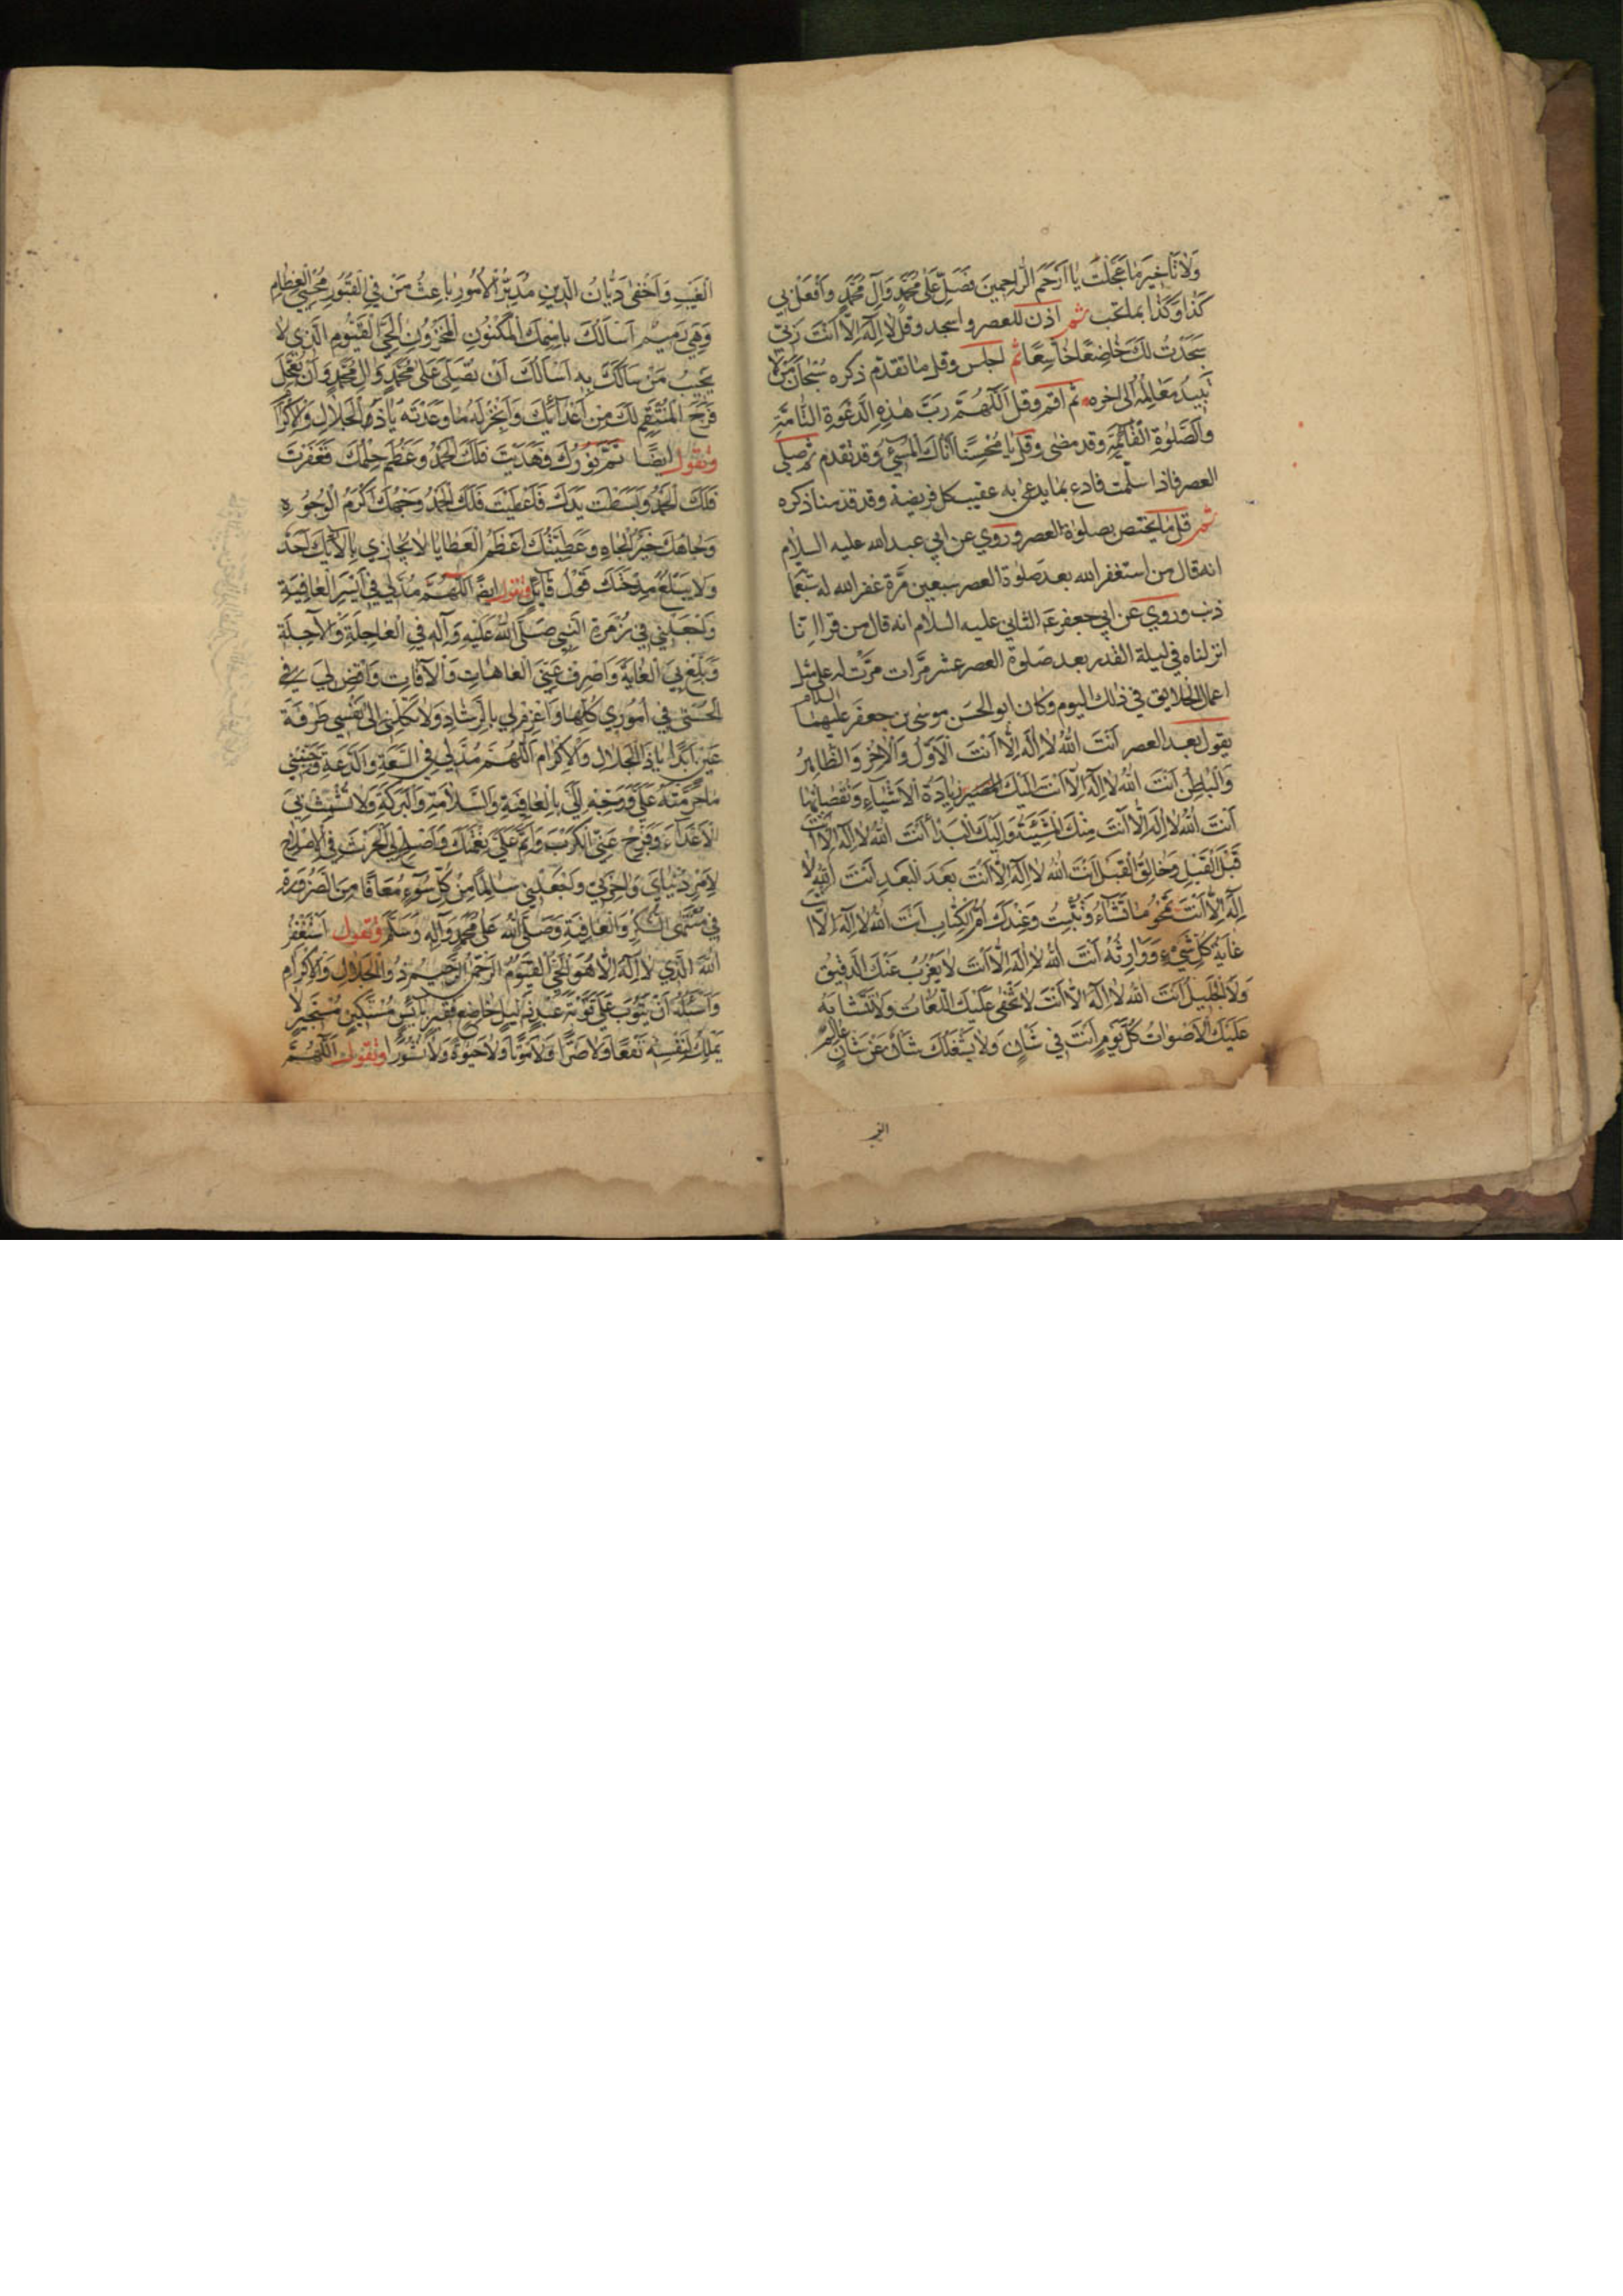 وَلَا تَاخِيرَ مَا عَجَّلْتَ يَا اَرْحَمَ الرَّاحِمِينَ فَصَلِّ عَلٰى مُحَمَّدٍ وَآلِ مُحَمَّدٍ وَافْعَلْ بِي
كَذَا وَكَذَا بما تحب ثم اذن للعصر واسجد وقل لَا اِلٰهَ اِلَّا اَنْتَ رَبِّي
سَجَدْتُ لَكَ خَاضِعًا خَاشِعًا ثم اجلس وقل ما تقدم ذكره سُبْحَانَ مَنْ لَا
تَبِيدُ مَعَالِمُهُ الى اخره ثم اقم وقل اَللّٰهُمَّ رَبَّ هٰذِهِ الدَّعْوَةِ التَّامَّةِ
وَالصَّلٰوةِ الْقَائِمَةِ وقد مضى وقل يَا مُحْسِنُ اَتَاكَ الْمُسِيءُ وقد تقدم ثم صلي
العصر فاذا سلمت فادع بما يدعى به عقيب كل فريضة وقد قدمنا ذكره
ثم قل ما يختص بصلوة العصر وروي عن ابي عبد الله عليه السلام
انه قال من استغفر الله بعد صلوة العصر سبعين مرة غفر الله له سبعمائة
ذنب وروي عن ابي جعفر الثاني عليه السلام انه قال من قرا انا
انزلناه في ليلة القدر بعد صلوة العصر عشر مرات مرت له على مثل
اعمال الخلايق في ذلك اليوم وكان ابو الحسن موسى بن جعفر عليهما السلام
يقول بعد العصر اَنْتَ اللهُ لَا اِلٰهَ اِلَّا اَنْتَ الْاَوَّلُ وَالْاٰخِرُ وَالظَّاهِرُ
وَالْبَاطِنُ اَنْتَ اللهُ لَا اِلٰهَ اِلَّا اَنْتَ اِلَيْكَ زِيَادَةُ الْاَشْيَاءِ وَنُقْصَانُهَا
اَنْتَ اللهُ لَا اِلٰهَ اِلَّا اَنْتَ مِنْكَ الْمَشِيَّةُ وَاِلَيْكَ الْبَدَاءُ اَنْتَ اللهُ لَا اِلٰهَ اِلَّا اَنْتَ
قَبْلَ الْقَبْلِ وَخَالِقُ الْقَبْلِ اَنْتَ اللهُ لَا اِلٰهَ اِلَّا اَنْتَ بَعْدَ الْبَعْدِ اَنْتَ اللهُ لَا
اِلٰهَ اِلَّا اَنْتَ تَمْحُو مَا تَشَاءُ وَتُثْبِتُ وَعِنْدَكَ اُمُّ الْكِتَابِ اَنْتَ اللهُ لَا اِلٰهَ اِلَّا اَنْتَ
غَايَةُ كُلِّ شَيْءٍ وَوَارِثُهُ اَنْتَ اللهُ لَا اِلٰهَ اِلَّا اَنْتَ لَا يَعْزُبُ عَنْكَ الدَّقِيقُ
وَلَا الْجَلِيلُ اَنْتَ اللهُ لَا اِلٰهَ اِلَّا اَنْتَ لَا تَخْفَى عَلَيْكَ اللُّغَاتُ وَلَا تَتَشَابَهُ
عَلَيْكَ الْاَصْوَاتُ كُلَّ يَوْمٍ اَنْتَ فِي شَأْنٍ وَلَا يَشْغَلُكَ شَأْنٌ عَنْ شَأْنٍ عَالِمُ
الْغَيْبِ وَاَخْفٰى دَيَّانُ الدِّينِ مُدَبِّرُ الْاُمُورِ بَاعِثُ مَنْ فِي الْقُبُورِ مُحْيِي الْعِظَامِ
وَهِيَ رَمِيمٌ اَسْاَلُكَ بِاسْمِكَ الْمَكْنُونِ الْمَخْزُونِ الْحَيِّ الْقَيُّومِ الَّذِي لَا
يَخِيبُ مَنْ سَاَلَكَ بِهِ اَسْاَلُكَ اَنْ تُصَلِّيَ عَلٰى مُحَمَّدٍ وَآلِ مُحَمَّدٍ وَاَنْ تُعَجِّلَ
فَرَجَ الْمُنْتَقِمِ لَكَ مِنْ اَعْدَائِكَ وَاَنْجِزْ لَهُ مَا وَعَدْتَهُ يَا ذَا الْجَلَالِ وَالْاِكْرَامِ
وتقول ايضًا تَمَّ نُورُكَ فَهَدَيْتَ فَلَكَ الْحَمْدُ وَعَظُمَ حِلْمُكَ فَغَفَرْتَ
فَلَكَ الْحَمْدُ وَبَسَطْتَ يَدَكَ فَاَعْطَيْتَ فَلَكَ الْحَمْدُ وَجْهُكَ اَكْرَمُ الْوُجُوهِ
وَجَاهُكَ خَيْرُ الْجَاهِ وَعَطِيَّتُكَ اَعْظَمُ الْعَطَايَا لَا يُجَازِي بِاٰلَائِكَ اَحَدٌ
وَلَا يَبْلُغُ مِدْحَتَكَ قَوْلُ قَائِلٍ وتقول ايضًا اَللّٰهُمَّ مُدَّ لِي فِي اَيْسَرِ الْعَافِيَةِ
وَاجْعَلْنِي فِي زُمْرَةِ النَّبِيِّ صَلَّى اللهُ عَلَيْهِ وَآلِهِ فِي الْعَاجِلَةِ وَالْاٰجِلَةِ
وَبَلِّغْ بِيَ الْغَايَةَ وَاصْرِفْ عَنِّي الْعَاهَاتِ وَالْاٰفَاتِ وَاقْضِ لِي بِ
الْحُسْنٰى فِي اُمُورِي كُلِّهَا وَاعْزِمْ لِي بِالرَّشَادِ وَلَا تَكِلْنِي اِلٰى نَفْسِي طَرْفَةَ
عَيْنٍ اَبَدًا يَا ذَا الْجَلَالِ وَالْاِكْرَامِ اَللّٰهُمَّ مُدَّ لِي فِي السَّعَةِ وَالدَّعَةِ وَجَنِّبْنِي
مَا حَرَّمْتَهُ عَلَيَّ وَوَجِّهْ اِلَيَّ بِالْعَافِيَةِ وَالسَّلَامَةِ وَالْبَرَكَةِ وَلَا تُشْمِتْ بِيَ
الْاَعْدَاءَ وَفَرِّجْ عَنِّي الْكَرْبَ وَاَتِمَّ عَلَيَّ نِعْمَتَكَ وَاَصْلِحْ لِيَ الْحَرْثَ فِي الْاِصْلَاحِ
لِاَمْرِ دُنْيَايَ وَاٰخِرَتِي وَاجْعَلْنِي سَالِمًا مِنْ كُلِّ سُوءٍ مُعَافًا مِنَ الضَّرُورَةِ
فِي مُنْتَهَى الشُّكْرِ وَالْعَافِيَةِ وَصَلَّى اللهُ عَلٰى مُحَمَّدٍ وَآلِهِ وَسَلَّمَ وتقول اَسْتَغْفِرُ
اللهَ الَّذِي لَا اِلٰهَ اِلَّا هُوَ الْحَيُّ الْقَيُّومُ الرَّحْمٰنُ الرَّحِيمُ ذُو الْجَلَالِ وَالْاِكْرَامِ
وَاَسْئَلُهُ اَنْ يَتُوبَ عَلَيَّ تَوْبَةَ عَبْدٍ ذَلِيلٍ خَاضِعٍ فَقِيرٍ بَائِسٍ مُسْتَكِينٍ مُسْتَجِيرٍ لَا
يَمْلِكُ لِنَفْسِهِ نَفْعًا وَلَا ضَرًّا وَلَا مَوْتًا وَلَا حَيٰوةً وَلَا نُشُورًا وتقول اَللّٰهُمَّ